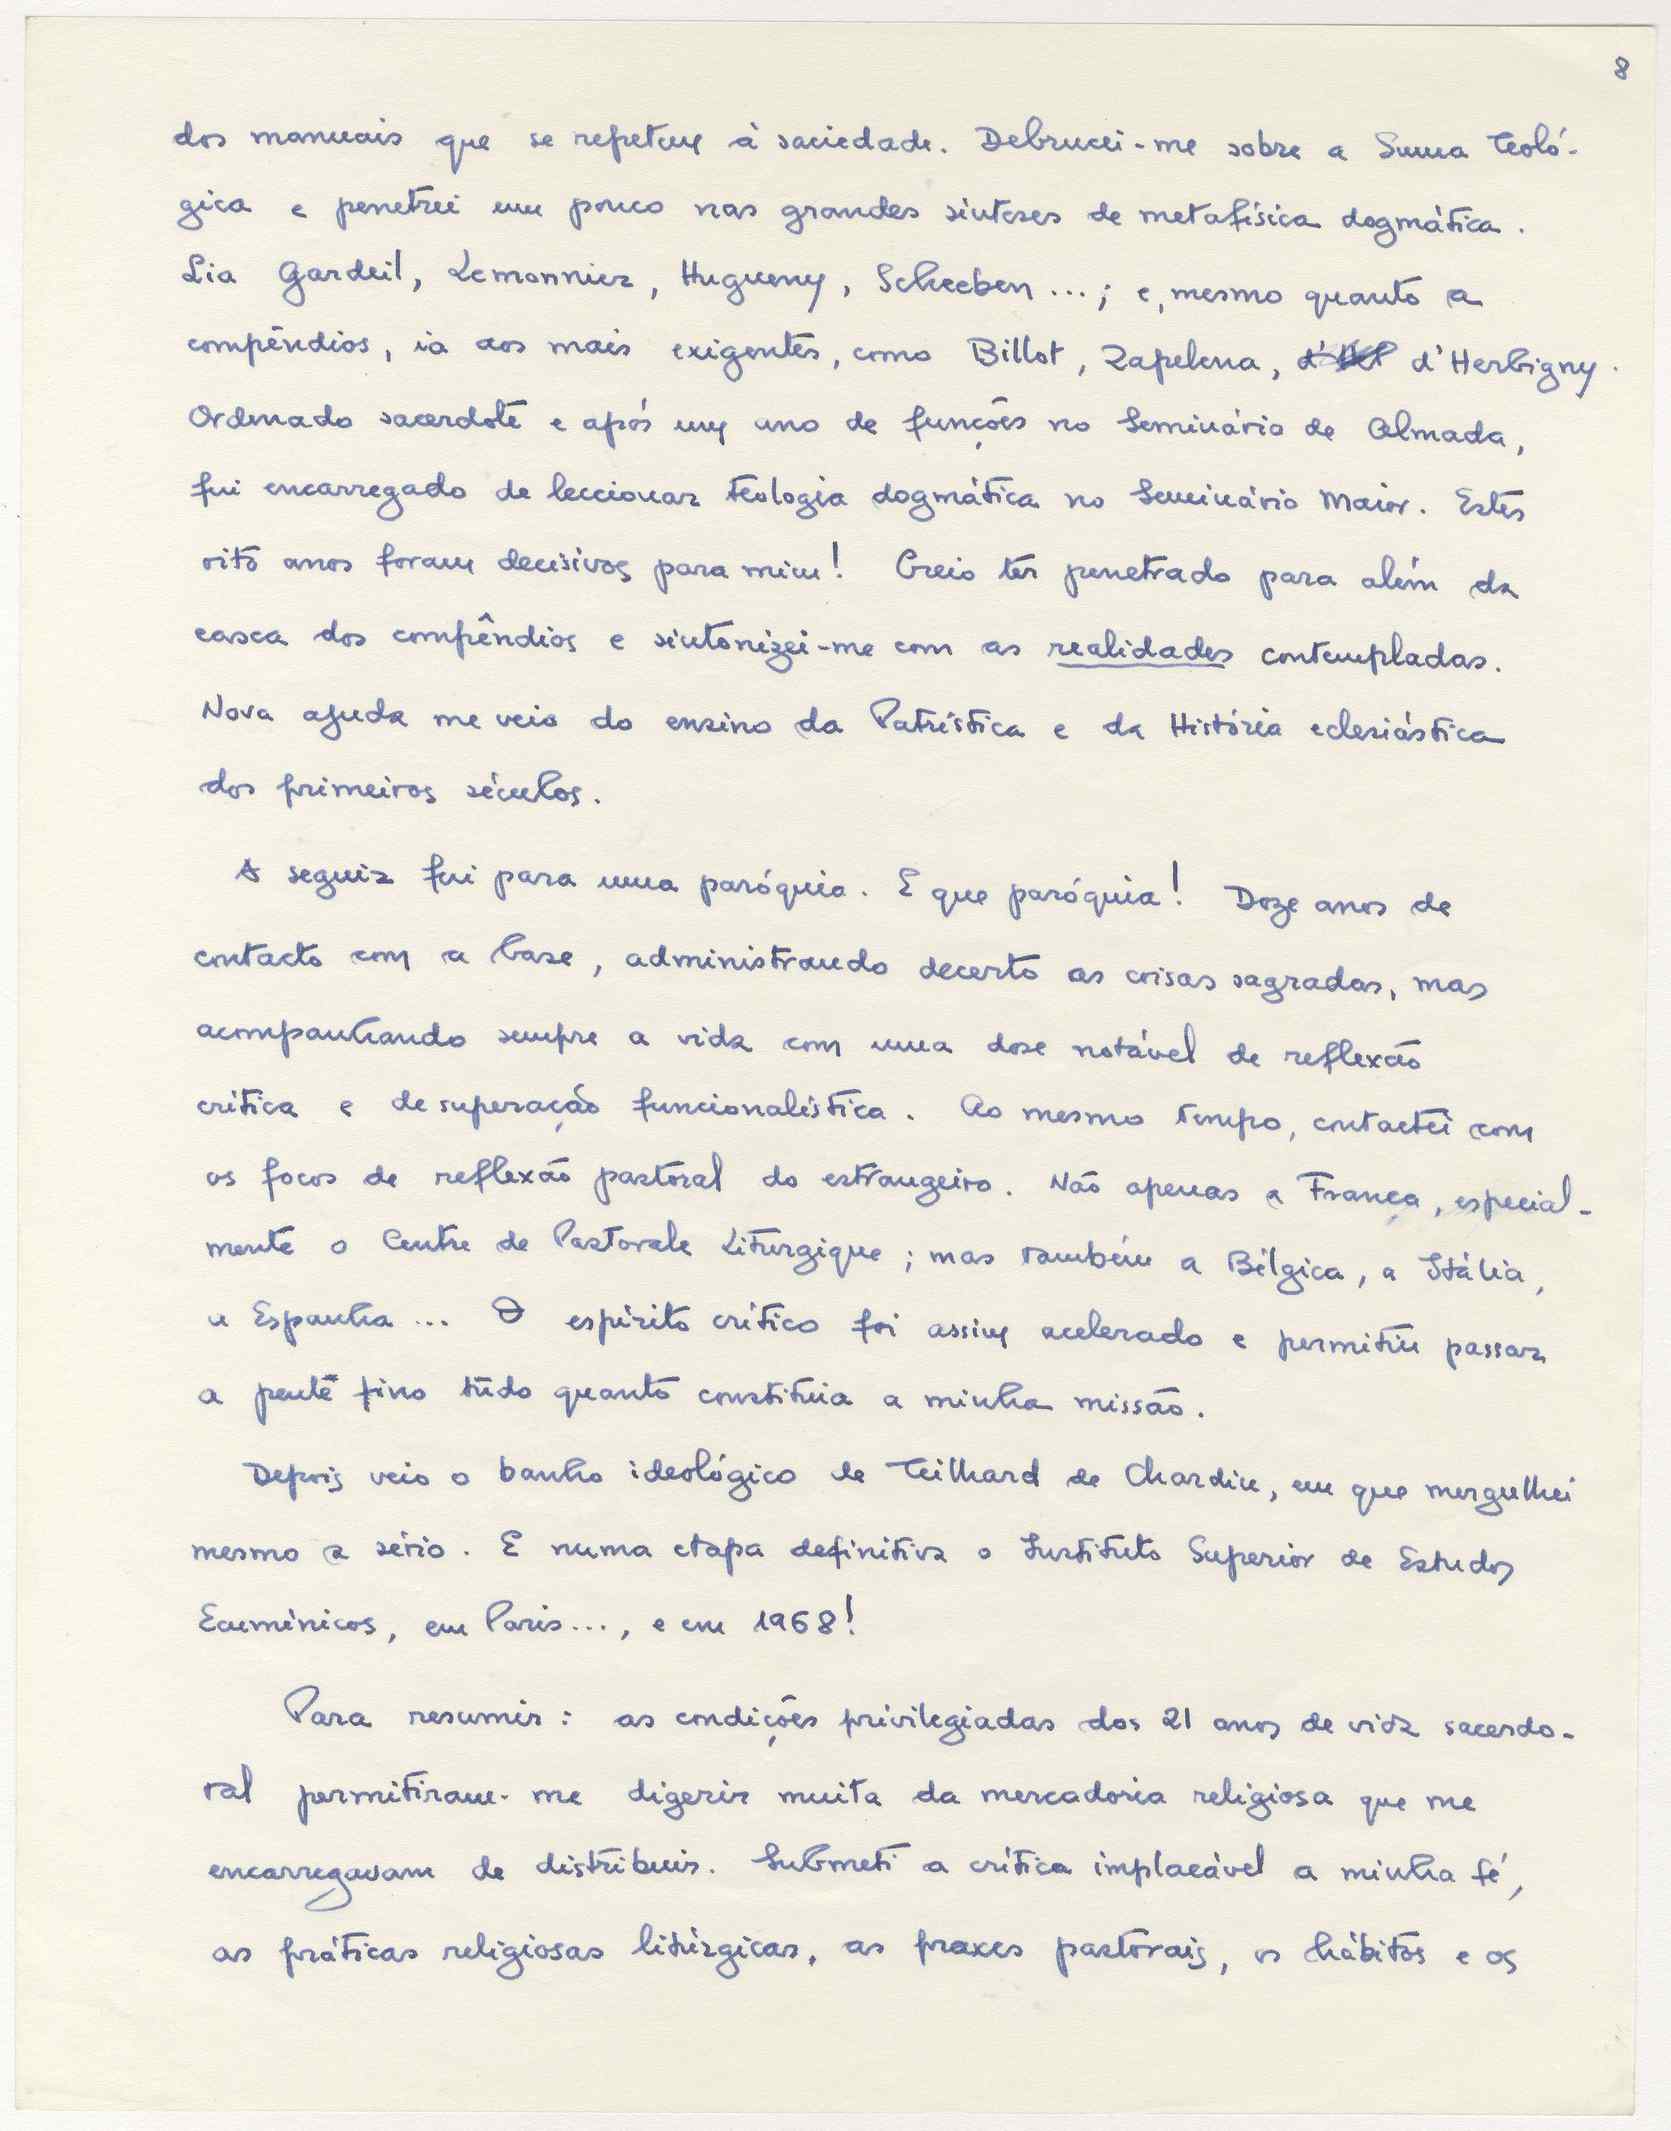 8
dos manuais que se repetem à saciedade. Debrucei-me sobre a Suma Teoló-
gica e penetrei um pouco nas grandes sínteses de metafísica dogmática.
Lia Gardeil, Lemonnier, Hugueny, Scheeben ...; e, mesmo quanto a
compêndios, ia aos mais exigentes, como Billot, Zapelena, d'Herbigny.
Ordenado sacerdote e após um ano de funções no Seminário de Almada,
fui encarregado de leccionar teologia dogmática no Seminário Maior. Estes
oito anos foram decisivos para mim! Creio ter penetrado para além da
casca dos compêndios e sintonizei-me com as realidades contempladas.
Nova ajuda me veio do ensino da Patrística e da História eclesiástica
dos primeiros séculos.
A seguir fui para uma paróquia. E que paróquia! Doze anos de
contacto com a base, administrando decerto as coisas sagradas, mas
acompanhando sempre a vida com uma dose notável de reflexão
crítica e de superação funcionalística. Ao mesmo tempo, contactei com
os focos de reflexão pastoral do estrangeiro. Não apenas a França, especial-
mente o Centre de Pastorale Liturgique; mas também a Bélgica, a Itália,
a Espanha ... O espírito crítico foi assim acelerado e permitiu passar
a pente fino tudo quanto constituia a minha missão.
Depois veio o banho ideológico de Teilhard de Chardin, em que mergulhei
mesmo a sério. E numa etapa definitiva o Instituto Superior de Estudos
Ecuménicos, em Paris..., e em 1968!
Para resumir: as condições privilegiadas dos 21 anos de vida sacerdo-
tal permitiram-me digerir muita da mercadoria religiosa que me
encarregavam de distribuir. Submeti a crítica implacável a minha fé,
as práticas religiosas litúrgicas, as praxes pastorais, os hábitos e os